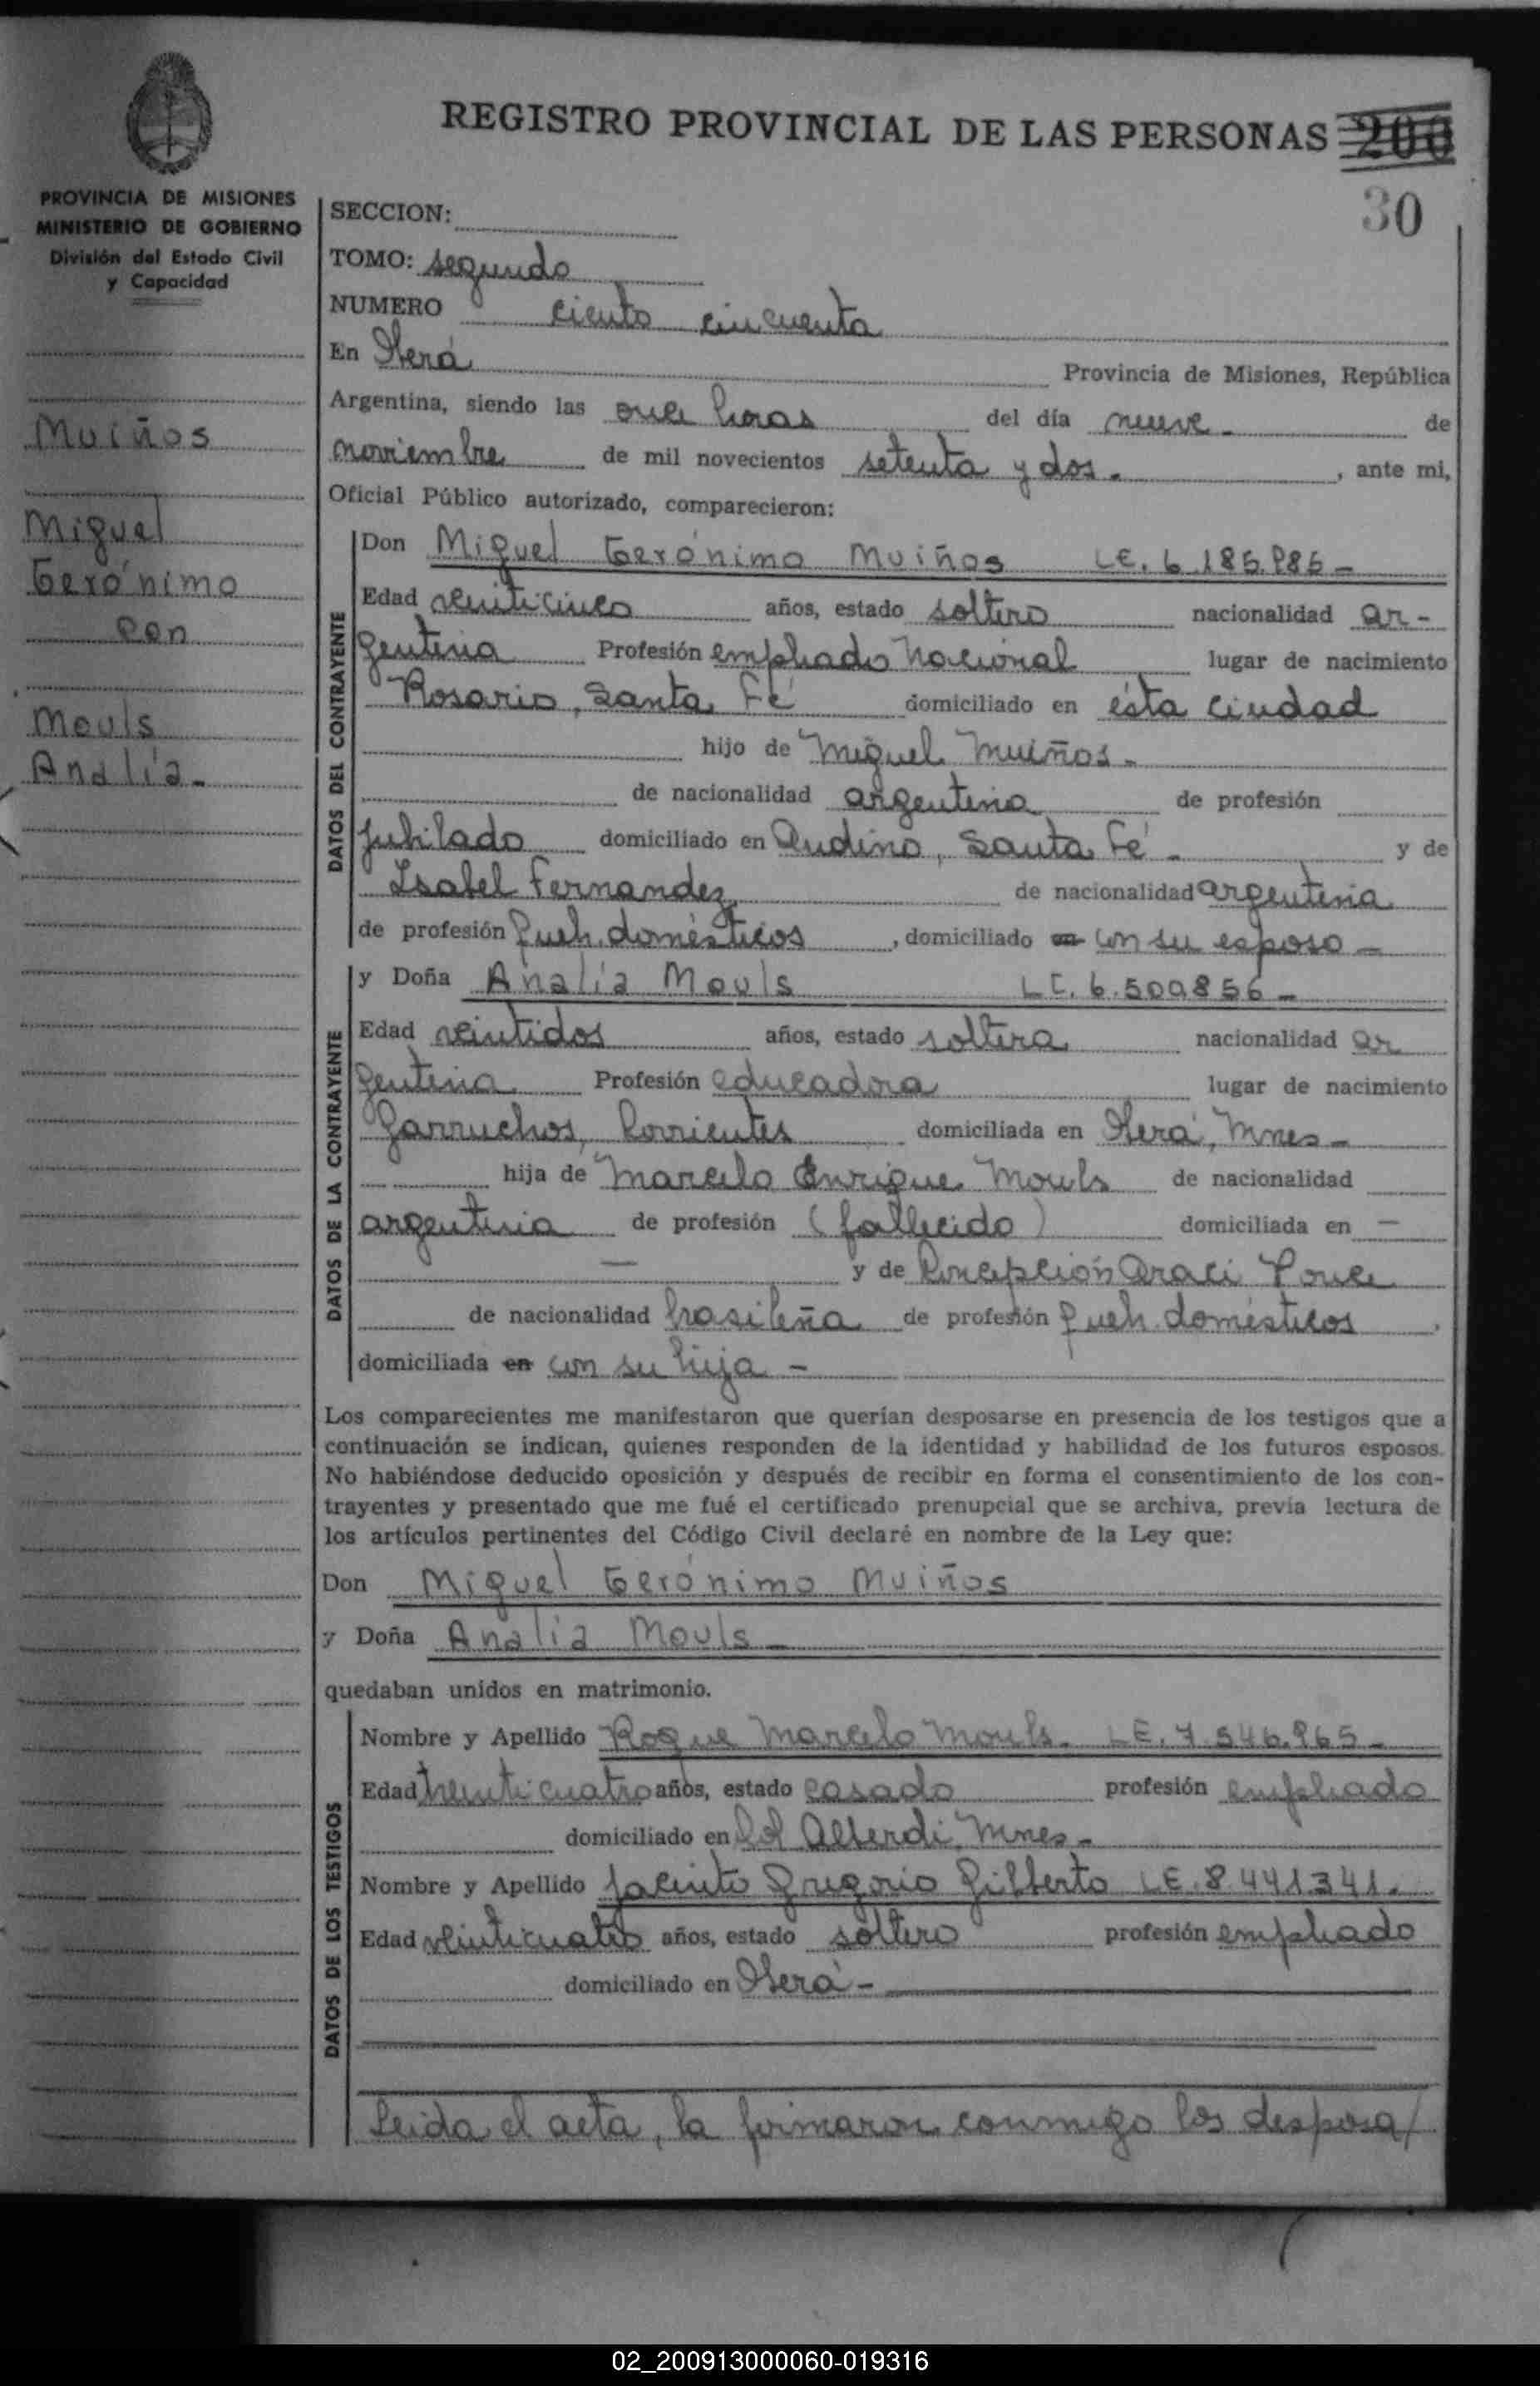 REGISTRO PROVINCIAL DE LAS PERSONAS 200
30
PROVINCIA DE MISIONES
MINISTERIO DE GOBIERNO
División del Estado Civil
y Capacidad
Muiños
Miguel
Gerónimo
con
Mouls
Analía.
SECCION:
TOMO: segundo
NUMERO ciento cincuenta
En Oberá Provincia de Misiones, República
Argentina, siendo las once horas del día nueve - de
noviembre de mil novecientos setenta y dos. , ante mi,
Oficial Público autorizado, comparecieron:
DATOS DEL CONTRAYENTE
Don Miguel Gerónimo Muiños LE. 6.185.985 -
Edad veinticinco años, estado soltero nacionalidad ar-
gentina Profesión empleado nacional lugar de nacimiento
Rosario, Santa Fé domiciliado en ésta ciudad
hijo de Miguel Muiños -
de nacionalidad argentina de profesión
jubilado domiciliado en Andino, Santa Fé - y de
Isabel Fernandez de nacionalidad argentina
de profesión queh. domésticos , domiciliado en con su esposo -
DATOS DE LA CONTRAYENTE
y Doña Analía Mouls LC. 6.500856 -
Edad veintidos años, estado soltera nacionalidad ar
gentina Profesión educadora lugar de nacimiento
Garruchos, Corrientes domiciliada en Oberá, Mnes -
hija de Marcelo Enrique Mouls de nacionalidad
argentina de profesión (fallecido) domiciliada en -
- y de Concepción Araci Ponce
de nacionalidad brasileña de profesión queh. domésticos ,
domiciliada en con su hija -
Los comparecientes me manifestaron que querían desposarse en presencia de los testigos que a
continuación se indican, quienes responden de la identidad y habilidad de los futuros esposos.
No habiéndose deducido oposición y después de recibir en forma el consentimiento de los con-
trayentes y presentado que me fué el certificado prenupcial que se archiva, previa lectura de
los artículos pertinentes del Código Civil declaré en nombre de la Ley que:
Don Miguel Gerónimo Muiños
y Doña Analía Mouls -
quedaban unidos en matrimonio.
DATOS DE LOS TESTIGOS
Nombre y Apellido Roque Marcelo Mouls. LE. 7.546.965 -
Edad treinticuatro años, estado casado profesión empleado
domiciliado en Col Alberdi, Mnes -
Nombre y Apellido Jacinto Gregorio Gilberto LE. 8.441341.
Edad veinticuatro años, estado soltero profesión empleado
domiciliado en Oberá -
Leida el acta, la firmaron conmigo los desposa/
02_200913000060-019316